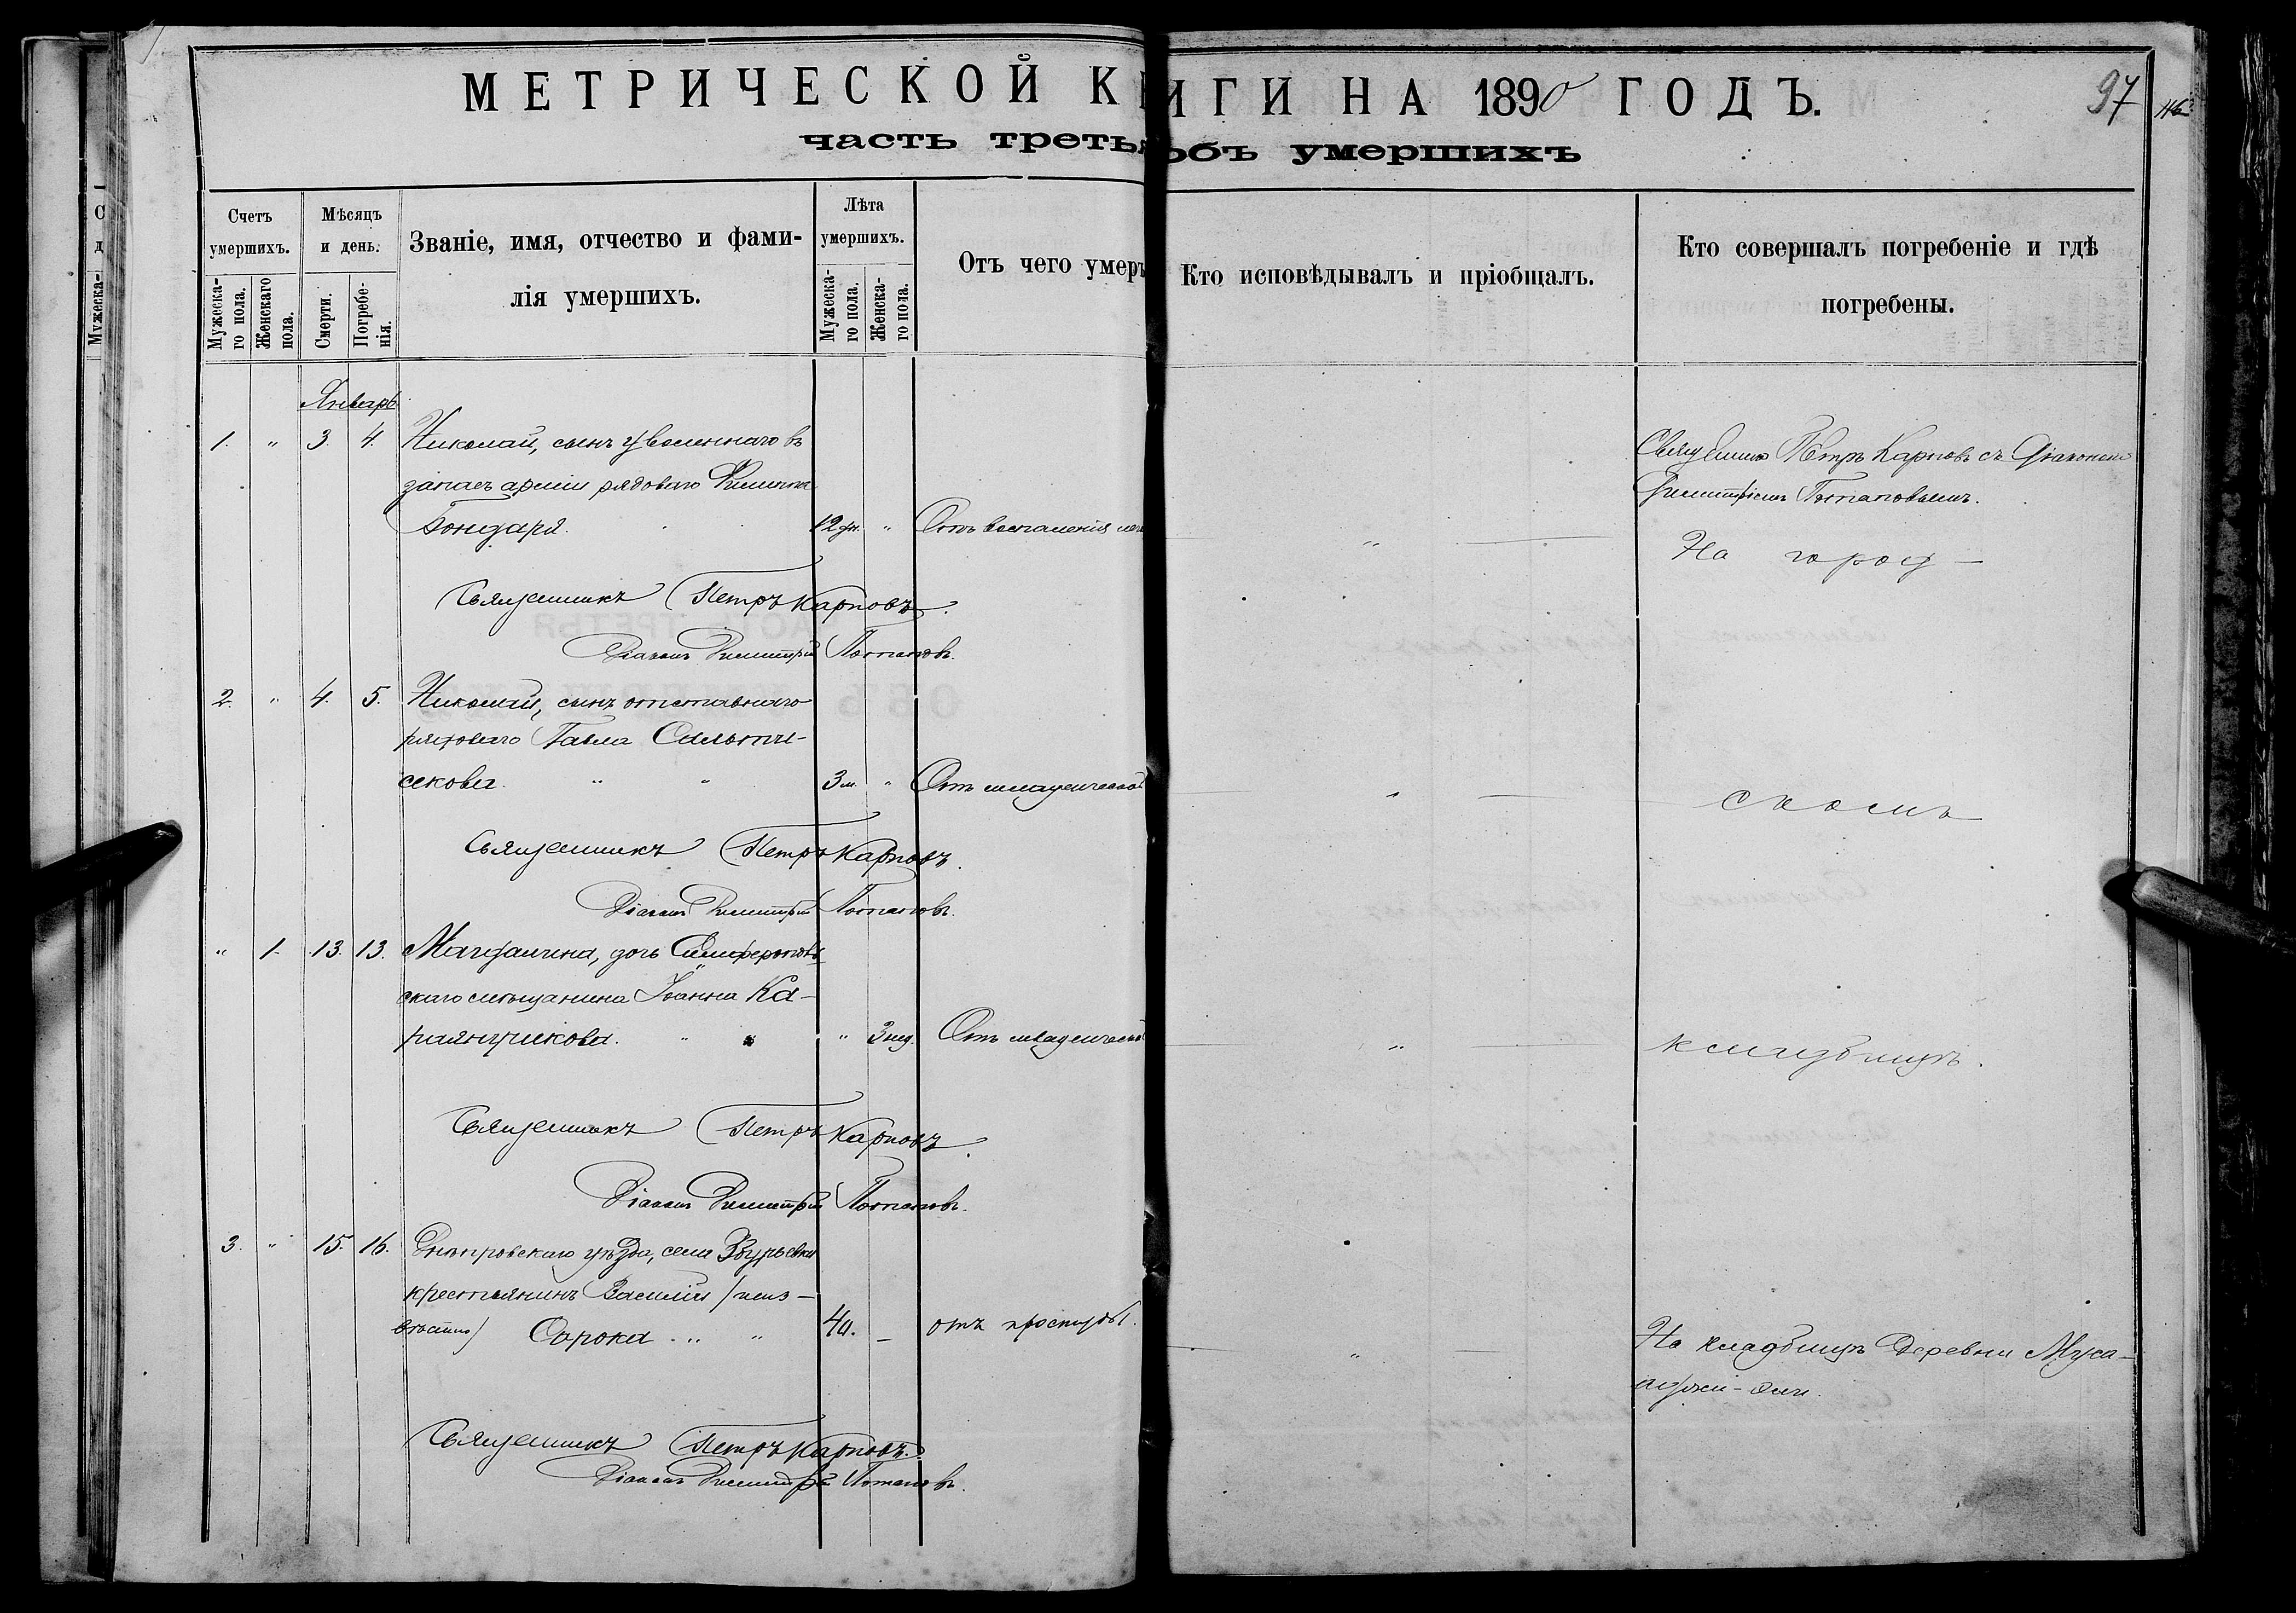 МЕТРИЧЕСКОЙ КНИГИ НА 1890 ГОДЪ.
97
часть третья объ умершихъ
Счетъ умершихъ.
Мужеска-го пола.
Женскаго пола.
Мѣсяцъ и день.
Смерти.
Погребе-нія.
Званіе, имя, отчество и фами-
лія умершихъ.
Лѣта умершихъ.
Мужеска-го пола.
Женска-го пола.
Отъ чего умеръ
Кто исповѣдывалъ и пріобщалъ.
Кто совершалъ погребеніе и гдѣ
погребены.
Январь
1. " 3. 4. Николай, сынъ уволеннаго въ
запасъ арміи рядоваго
Бондаря. 12 дн. " Отъ воспаленія
"
Священникъ Петръ Карповъ съ Діакономъ
Димитріемъ Потаповымъ.
На город-
Священникъ Петръ Карповъ.
Діаконъ Димитрій Потаповъ.
2. " 4. 5. Николай, сынъ отставнаго
рядоваго Павла
секова. " " 3 м. " Отъ младенческой
"
скомъ
Священникъ Петръ Карповъ.
Діаконъ Димитрій Потаповъ.
" 1. 13. 13. Магдалина, дочь Симферополь-
скаго мѣщанина Іоанна Ка-
" 3 нед. Отъ младенческой
"
кладбищѣ.
Священникъ Петръ Карповъ.
Діаконъ Димитрій Потаповъ.
3. " 15. 16. Днѣпровскаго уѣзда, села Збурьевки
крестьянинъ Василій /неиз-
вѣстно/ Сорока " 40. - отъ простуды.
"
На кладбищѣ деревни Муса-
аджи-эли.
Священникъ Петръ Карповъ.
Діаконъ Димитрій Потаповъ.